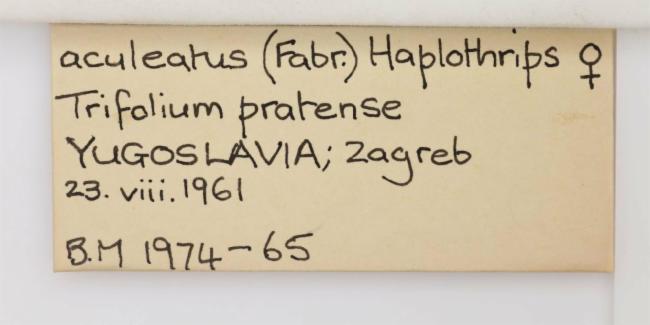 aculeatus (Fabr.) Haplothrips ♀
Trifolium pratense
YUGOSLAVIA; Zagreb
23. viii. 1961
B.M 1974-65